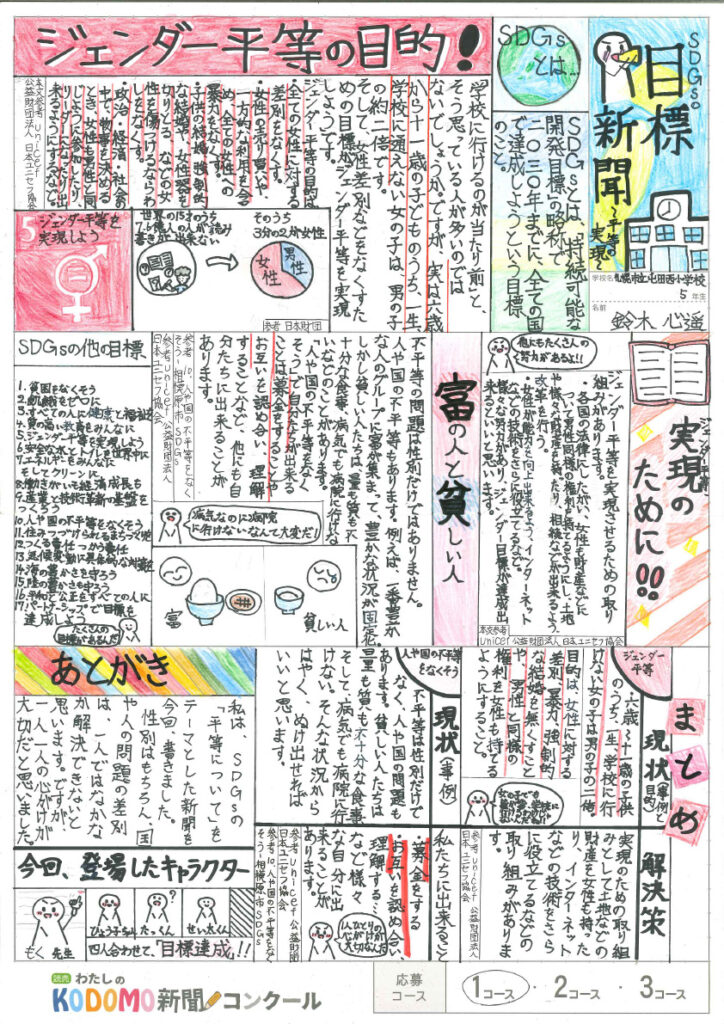 SDGsの
目標
新聞
～平等の
実現～
学校名 札幌市立屯田西小学校
5 年生
名前
鈴木 心遥
SDGs
とは…
SDGsとは、「持続可能な
開発目標」の略称で、
二〇三〇年までに、全ての国
で達成しようという目標
のこと。
ジェンダー平等の目的！
「学校に行けるのが当たり前」と、
そう思っている人が多いのでは
ないでしょうか。ですが、実は六歳
から十一歳の子どものうち、一生、
学校に通えない女の子は、男の子
の約二倍です。
そして、女性差別などをなくすた
めの目標が「ジェンダー平等を実現
しよう」です。
ジェンダー平等の目的は、
・全ての女性に対する
差別をなくす。
・女性の売り買いや
一方的な利用を含
め、全ての女性への
暴力をなくす。
・子供の結婚、強制的
な結婚や、女性器を
切りとる、などの女
性を傷つけるならわ
しをなくす。
・政治・経済・社会の
中で、物事を決める
とき、女性も男性と同
じように参加したり、
リーダーになったり出
来るようにするなど。
本文参考 unicef
公益財団法人 日本ユニセフ協会
5 ジェンダー平等を
実現しよう
世界の15才のうち
7.6億人の人が読み
書きが出来ない
そのうち
3分の2が女性
女性
男性
参考 日本財団
実現の
ために!!
ジェンダー平等
ジェンダー平等を実現させるための取り
組みがあります。
・各国の法律にしたがい、女性も財産などに
ついて男性同様の権利が持てるようにし、土地
や様々な財産を持ったり、相続などが出来るよう、
改革を行う。
・女性が能力を向上出来るよう、インターネット
などの技術をさらに役立てるなど。
様々な努力があり、ジェンダー目標が達成出
来るといいと思います。
他にもたくさんの
努力があるよ!!
本文参考
unicef 公益財団法人 日本ユニセフ協会
富の人と貧しい人
不平等の問題は性別だけではありません。
人や国の不平等もあります。例えば、一番豊か
な人のグループに富が集まって、豊かな状況が固定化
しかし貧しい人たちは、量も質も不
十分な食事、病気でも病院に行けな
いなどのことがあります。
「人や国の不平等をなく
そう」で自分たちが出来る
ことは募金をすることや
お互いを認め合い、理解
することなど、他にも自
分たちに出来ることが
あります。
参考 10.人や国の不平等をなく
そう-相模原市SDGs
参考 unicef 公益財団法人
日本ユニセフ協会
病気なのに病院
に行けないなんて大変だ！
富
貧しい人
SDGsの他の目標
1.貧困をなくそう
2.飢餓をゼロに
3.すべての人に健康と福祉を
4.質の高い教育をみんなに
5.ジェンダー平等を実現しよう
6.安全な水とトイレを世界中に
7.エネルギーをみんなに
そしてクリーンに
8.働きがいも経済成長も
9.産業と技術革新の基盤を
つくろう
10.人や国の不平等をなくそう
11.住みつづけられるまちづくりを
12.つくる責任つかう責任
13.気候変動に具体的な対策を
14.海の豊かさを守ろう
15.陸の豊かさも守ろう
16.平和と公正をすべての人に
17.パートナーシップで目標を
達成しよう
たくさんの
目標があるんだ！
まとめ
ジェンダー
平等
現状（事例と目的）
六歳～十一歳の子供
のうち、一生、学校に行
けない女の子は男の子の二倍。
目的は、女性に対する
差別、暴力、強制的
な結婚を無くすこと
や、男性と同様の
権利を女性も持てる
ようにすること。
解決策
実現のための取り組
みとして土地などの
財産を女性も持った
り、インターネット
などの技術をさら
に役立てるなどの
取り組みがありま
す。
参考 unicef 公益財団法人
日本ユニセフ協会
人や国の不平等
をなくそう
現状（事例）
不平等は性別だけで
なく、人や国の問題も
あります。貧しい人たちは
量も質も不十分な食事、
そして、病気でも病院に行
けない。そんな状況から
はやく、ぬけ出せれば
いいと思います。
私たちに出来ること
・募金をする
・お互いを認め合い、
理解する
など、様々
な自分に出
来ることが
あります。
参考 unicef 公益財団法人
日本ユニセフ協会
参考 10.人や国の不平等をなく
そう-相模原市SDGs
あとがき
私は、SDGsの
「平等について」を
テーマとした新聞を
今回、書きました。
性別はもちろん、国
や人の問題の差別
は、一人ではなかな
か解決できないと
思います。ですが、
一人一人の心がけが
大切だと思いました。
今回、登場したキャラクター
もく先生
ひょうちゃん
たっくん
せい太くん
四人合わせて、「目標達成」!!
読売 わたしの
KODOMO新聞コンクール
応募
コース
1コース・2コース・3コース